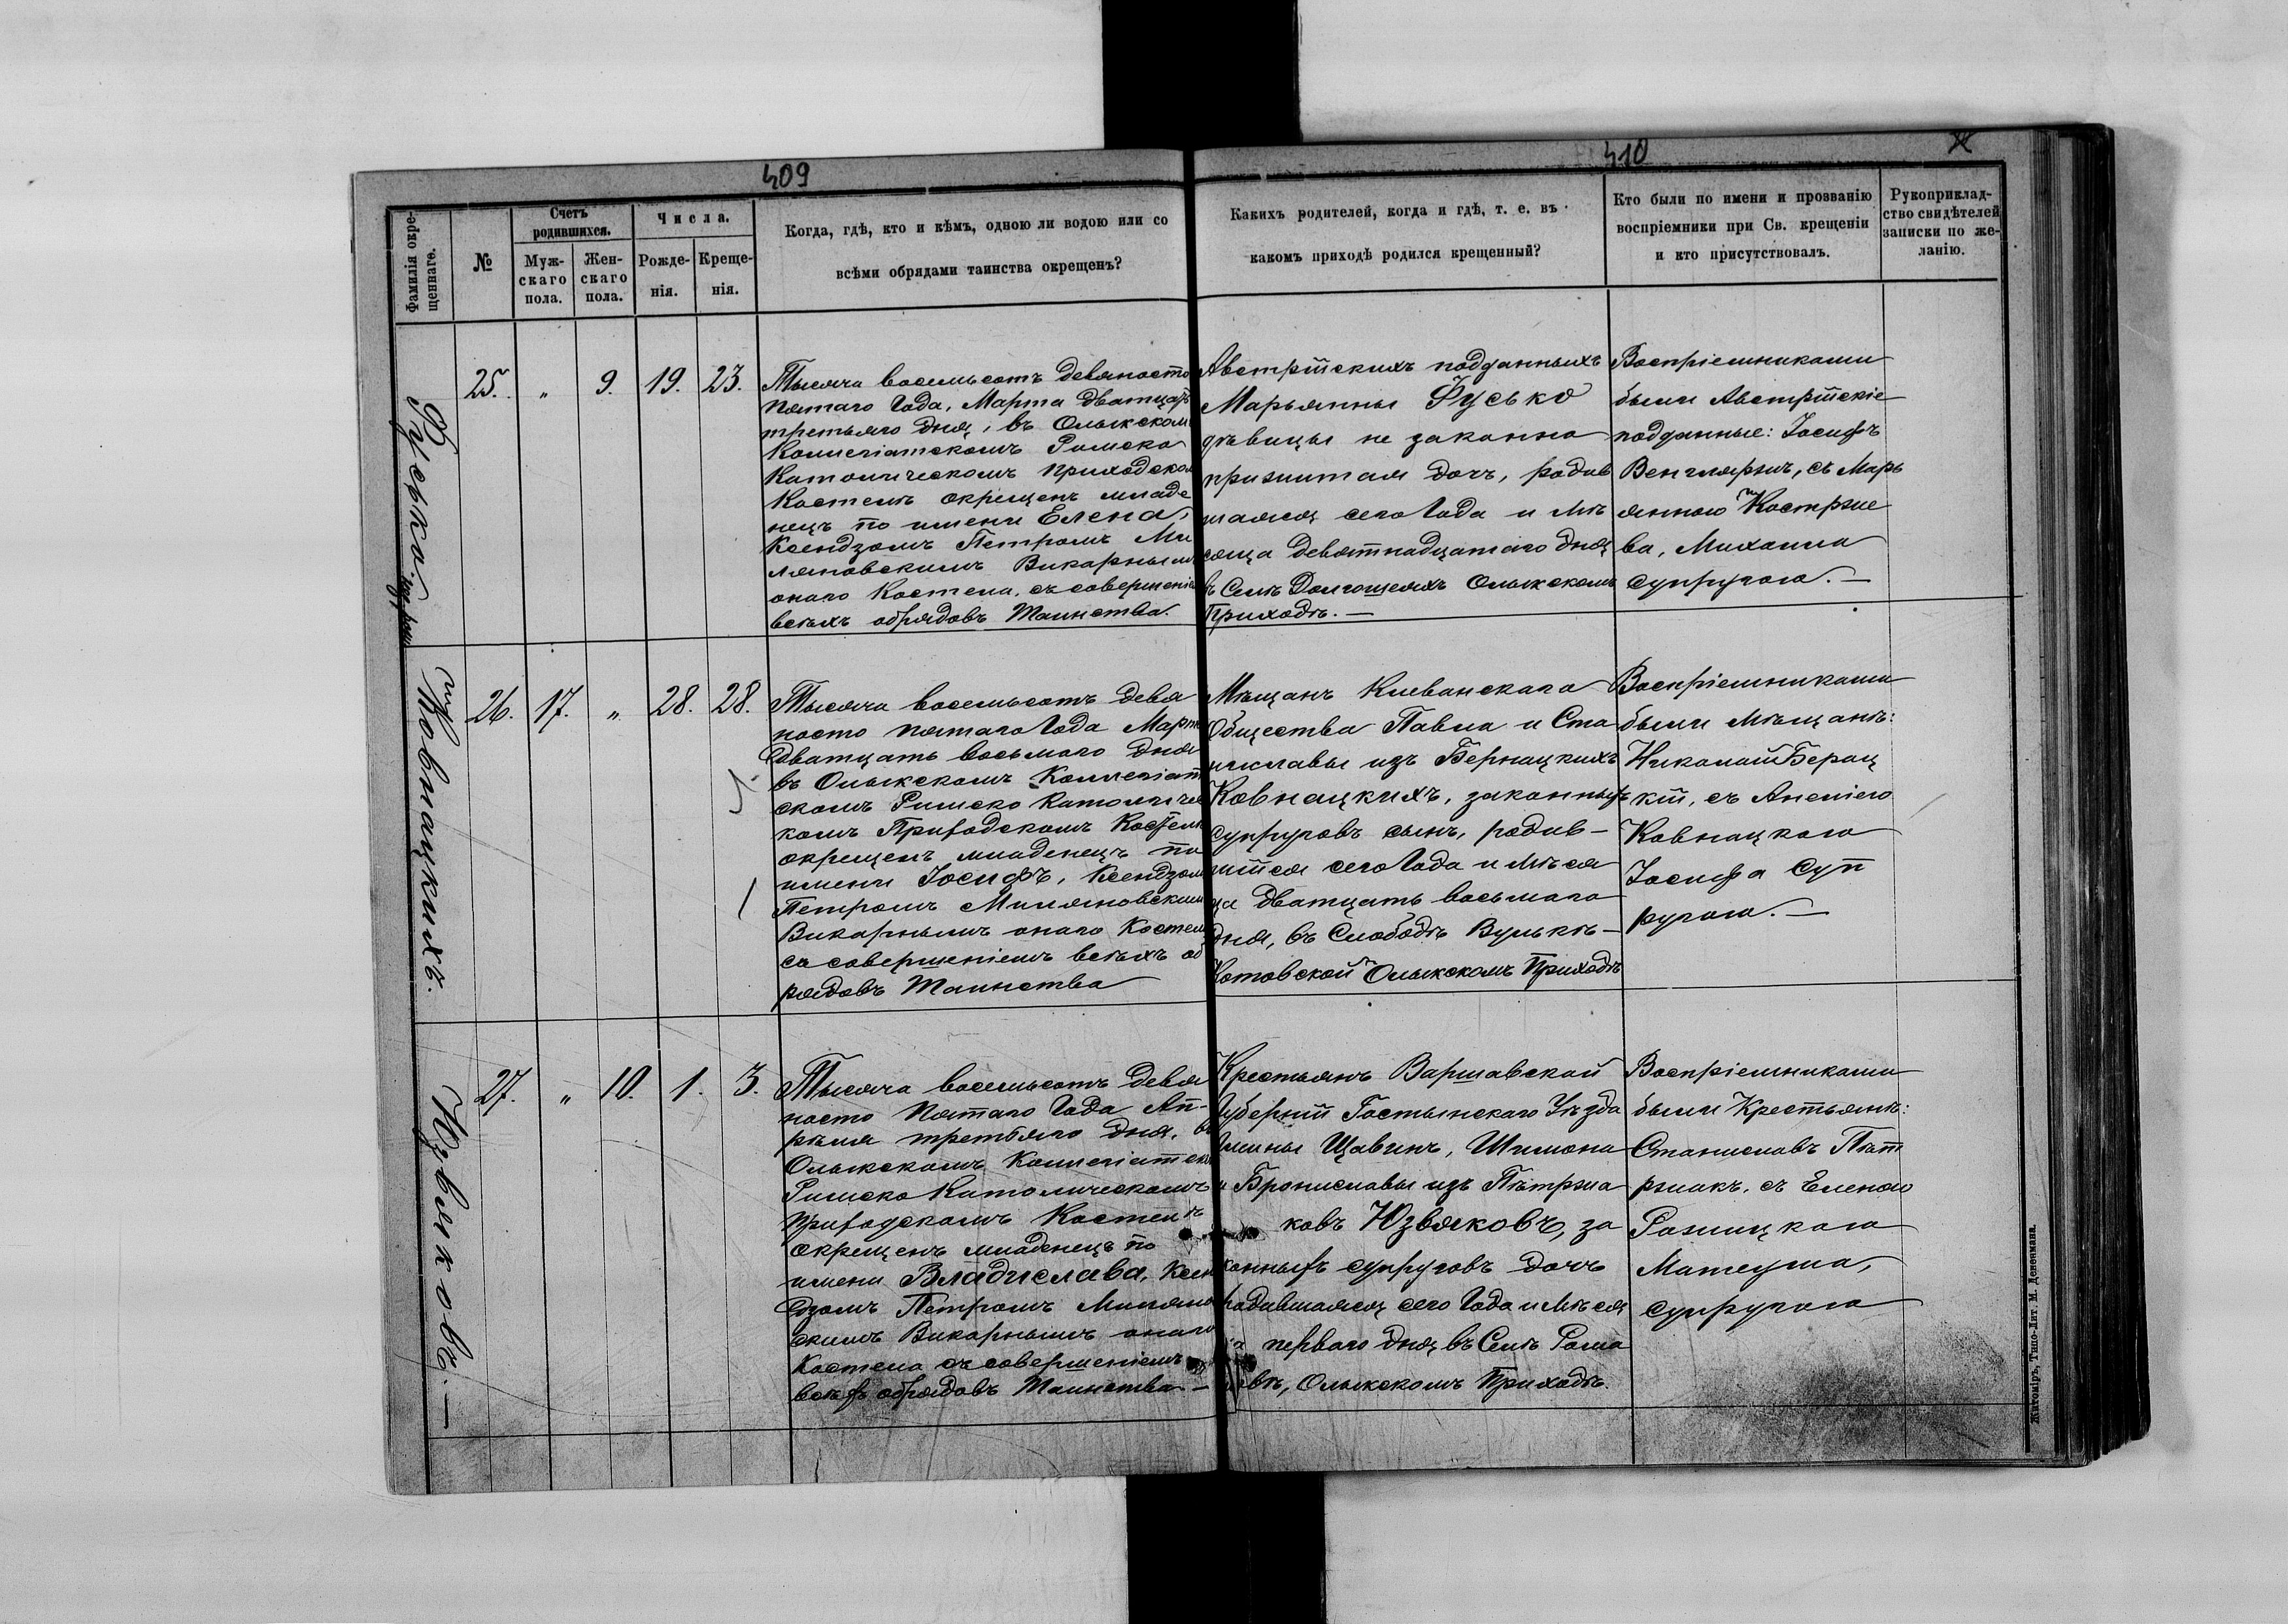 409
410
Фамилія окре-
щеннаго.
№
Счетъ
родившихся.
Муж-
скаго
пола.
Жен-
скаго
пола.
Числа.
Рожде-
нія.
Креще-
нія.
Когда, гдѣ, кто и кѣмъ, одною ли водою или со
всѣми обрядами таинства окрещенъ?
Какихъ родителей, когда и гдѣ, т. е. въ
какомъ приходѣ родился крещенный?
Кто были по имени и прозванію
воспріемники при Св. крещеніи
и кто присутствовалъ.
Рукоприклад-
ство свидѣтелей
записки по же-
ланію.
Фусько.
25. „ 9. 19. 23.
Тысяча восемьсотъ девяносто
пятаго Года, Марта дватцать
третьяго дня, въ Олыкскомъ
Коллегіатскомъ Римско
Католическомъ Приходском
Костелѣ окрещенъ младе
нецъ по имени Елена,
Ксендзомъ Петромъ Ми
ляновскимъ Викарнымъ
онаго Костела, съ совершеніем
всѣхъ обрядовъ Таинства.
Австрійскихъ подданныхъ
Марьянны Фусько
дѣвицы не законно
прижитая дочь, родив
шаяся сего Года и Мѣ
сяца девятнадцатаго дня
въ Селѣ Долгошеяхъ Олыкскомъ
Приходѣ. —
Воспріемниками
были Австрійскіе
подданные: Іосифъ
Венгляржъ, съ Марь
янною Костржe
ва, Михаила
супругою. —
Ковнацкихъ.
26. 17. „ 28. 28.
Тысяча восемьсотъ девя
носто пятаго Года Марта
дватцать восьмого дня
въ Олыкскомъ Коллегіат
скомъ Римско Католичес
комъ Приходскомъ Костелѣ
окрещенъ младенецъ по
имени Іосифъ, Ксендзом
Петромъ Миляновским
Викарнымъ онаго Костела
съ совершеніемъ всѣхъ об
рядовъ Таинства
Мѣщанъ Клеванскаго
Общества Павла и Ста
ниславы изъ Бернацкихъ
Ковнацкихъ, законныхъ
супруговъ сынъ, родив-
шійся сего Года и Мѣся
ца дватцать восьмого
дня, въ Слободѣ Вулькѣ-
Котовской Олыкскомъ Приходѣ
Воспріемниками
были Мѣщанѣ:
Николай Бернац
кій, съ Анелiею
Ковнацкою
Іосифа Суп
ругою. —
Юзвяковъ. —
27. „ 10. 1. 3.
Тысяча восемьсотъ девя
носто Пятаго Года Ап-
рѣля третьяго дня, въ
Олыкскомъ Коллегіатском
Римско Католическомъ
Приходскомъ Костелѣ
окрещенъ младенецъ по
имени Владислава, Ксен
дзомъ Петромъ Милянов
скимъ Викарнымъ онаго
Костела съ совершеніемъ
всѣхъ обрядовъ Таинства —
Крестьянъ Варшавской
Губерніи Гостынскаго Уѣзда
Гмины Щавинъ, Шимона
и Брониславы изъ Пѣтржа
ковъ Юзвяковъ, за
конныхъ супруговъ дочь
родившаяся сего Года и Мѣся
ца перваго дня въ Селѣ Рома
новѣ, Олыкскомъ Приходѣ.
Воспріемниками
были Крестьянѣ:
Станиславъ Пѣт
ржакъ, съ Еленою
Матеуша,
супругою
Житоміръ, Типо-Лит. М. Дененмана.